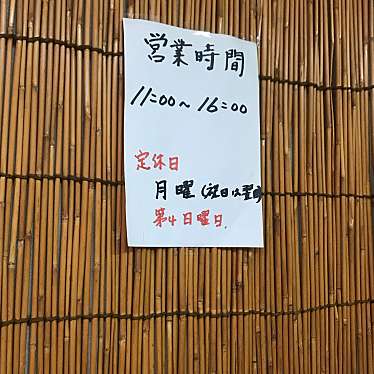 営業時間
11:00〜16:00
定休日
月曜(祝日は翌日
第4日曜日